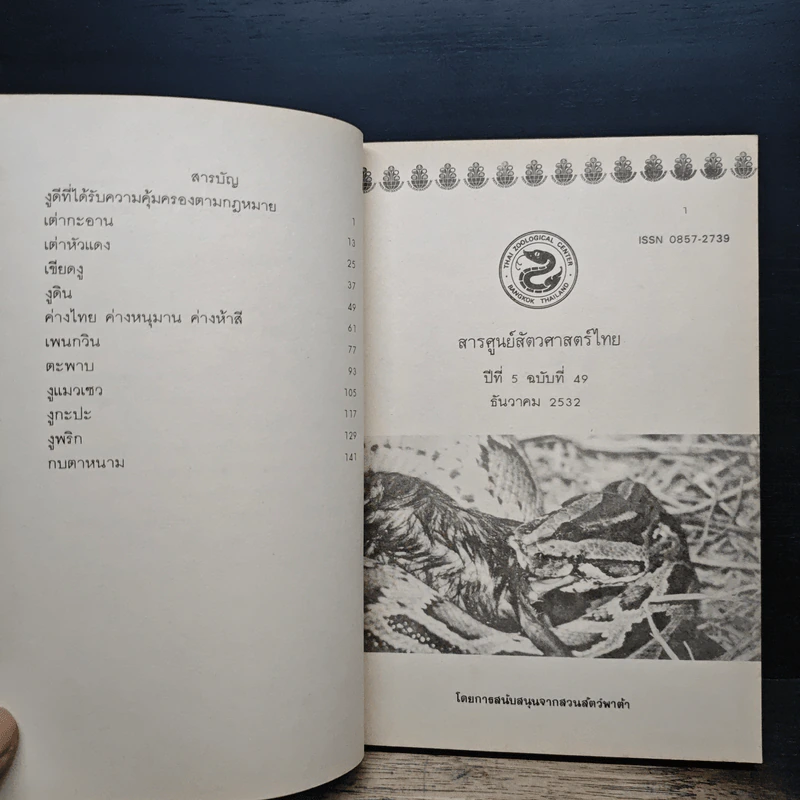 สารบัญ
งูดีที่ได้รับความคุ้มครองตามกฎหมาย 1
เต่ากะอาน 13
เต่าหัวแดง 25
เขียดงู 37
งูดิน 49
ค่างไทย ค่างหนุมาน ค่างห้าสี 61
เพนกวิน 77
ตะพาบ 93
งูแมวเซา 105
งูกะปะ 117
งูพริก 129
กบตาหนาม 141
1
ISSN 0857-2739
THAI ZOOLOGICAL CENTER
BANGKOK THAILAND
สารศูนย์สัตวศาสตร์ไทย
ปีที่ 5 ฉบับที่ 49
ธันวาคม 2532
โดยการสนับสนุนจากสวนสัตว์พาต้า